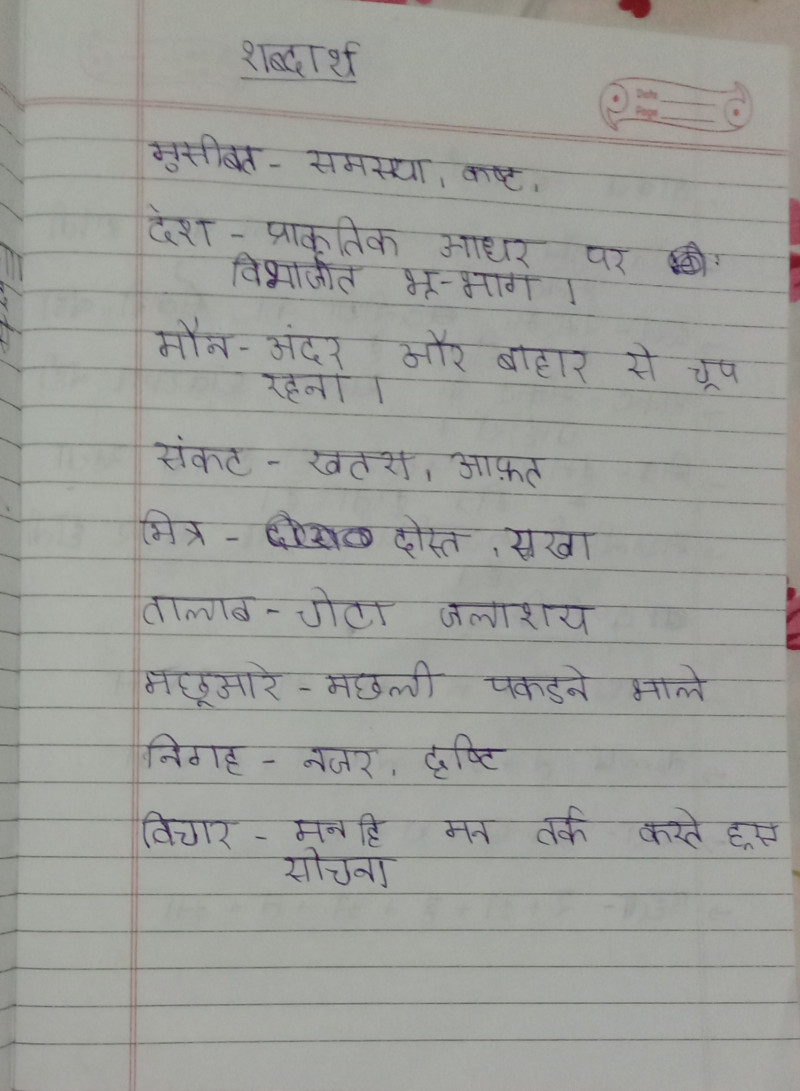 शब्दार्थ
Date
Page
मुसीबत - समस्या, कष्ट,
देश - प्राकृतिक आधर पर
विभाजीत भू-भाग ।
मौन - अंदर और बाहार से चूप
रहना ।
संकट - खतरा, आफ़त
मित्र - दोस्त, सखा
तालाब - छोटा जलाशय
मछूआरे - मछली पकडने भाले
निगह - नजर, दृष्टि
विचार - मन हि मन तर्क करते हूए
सोचना